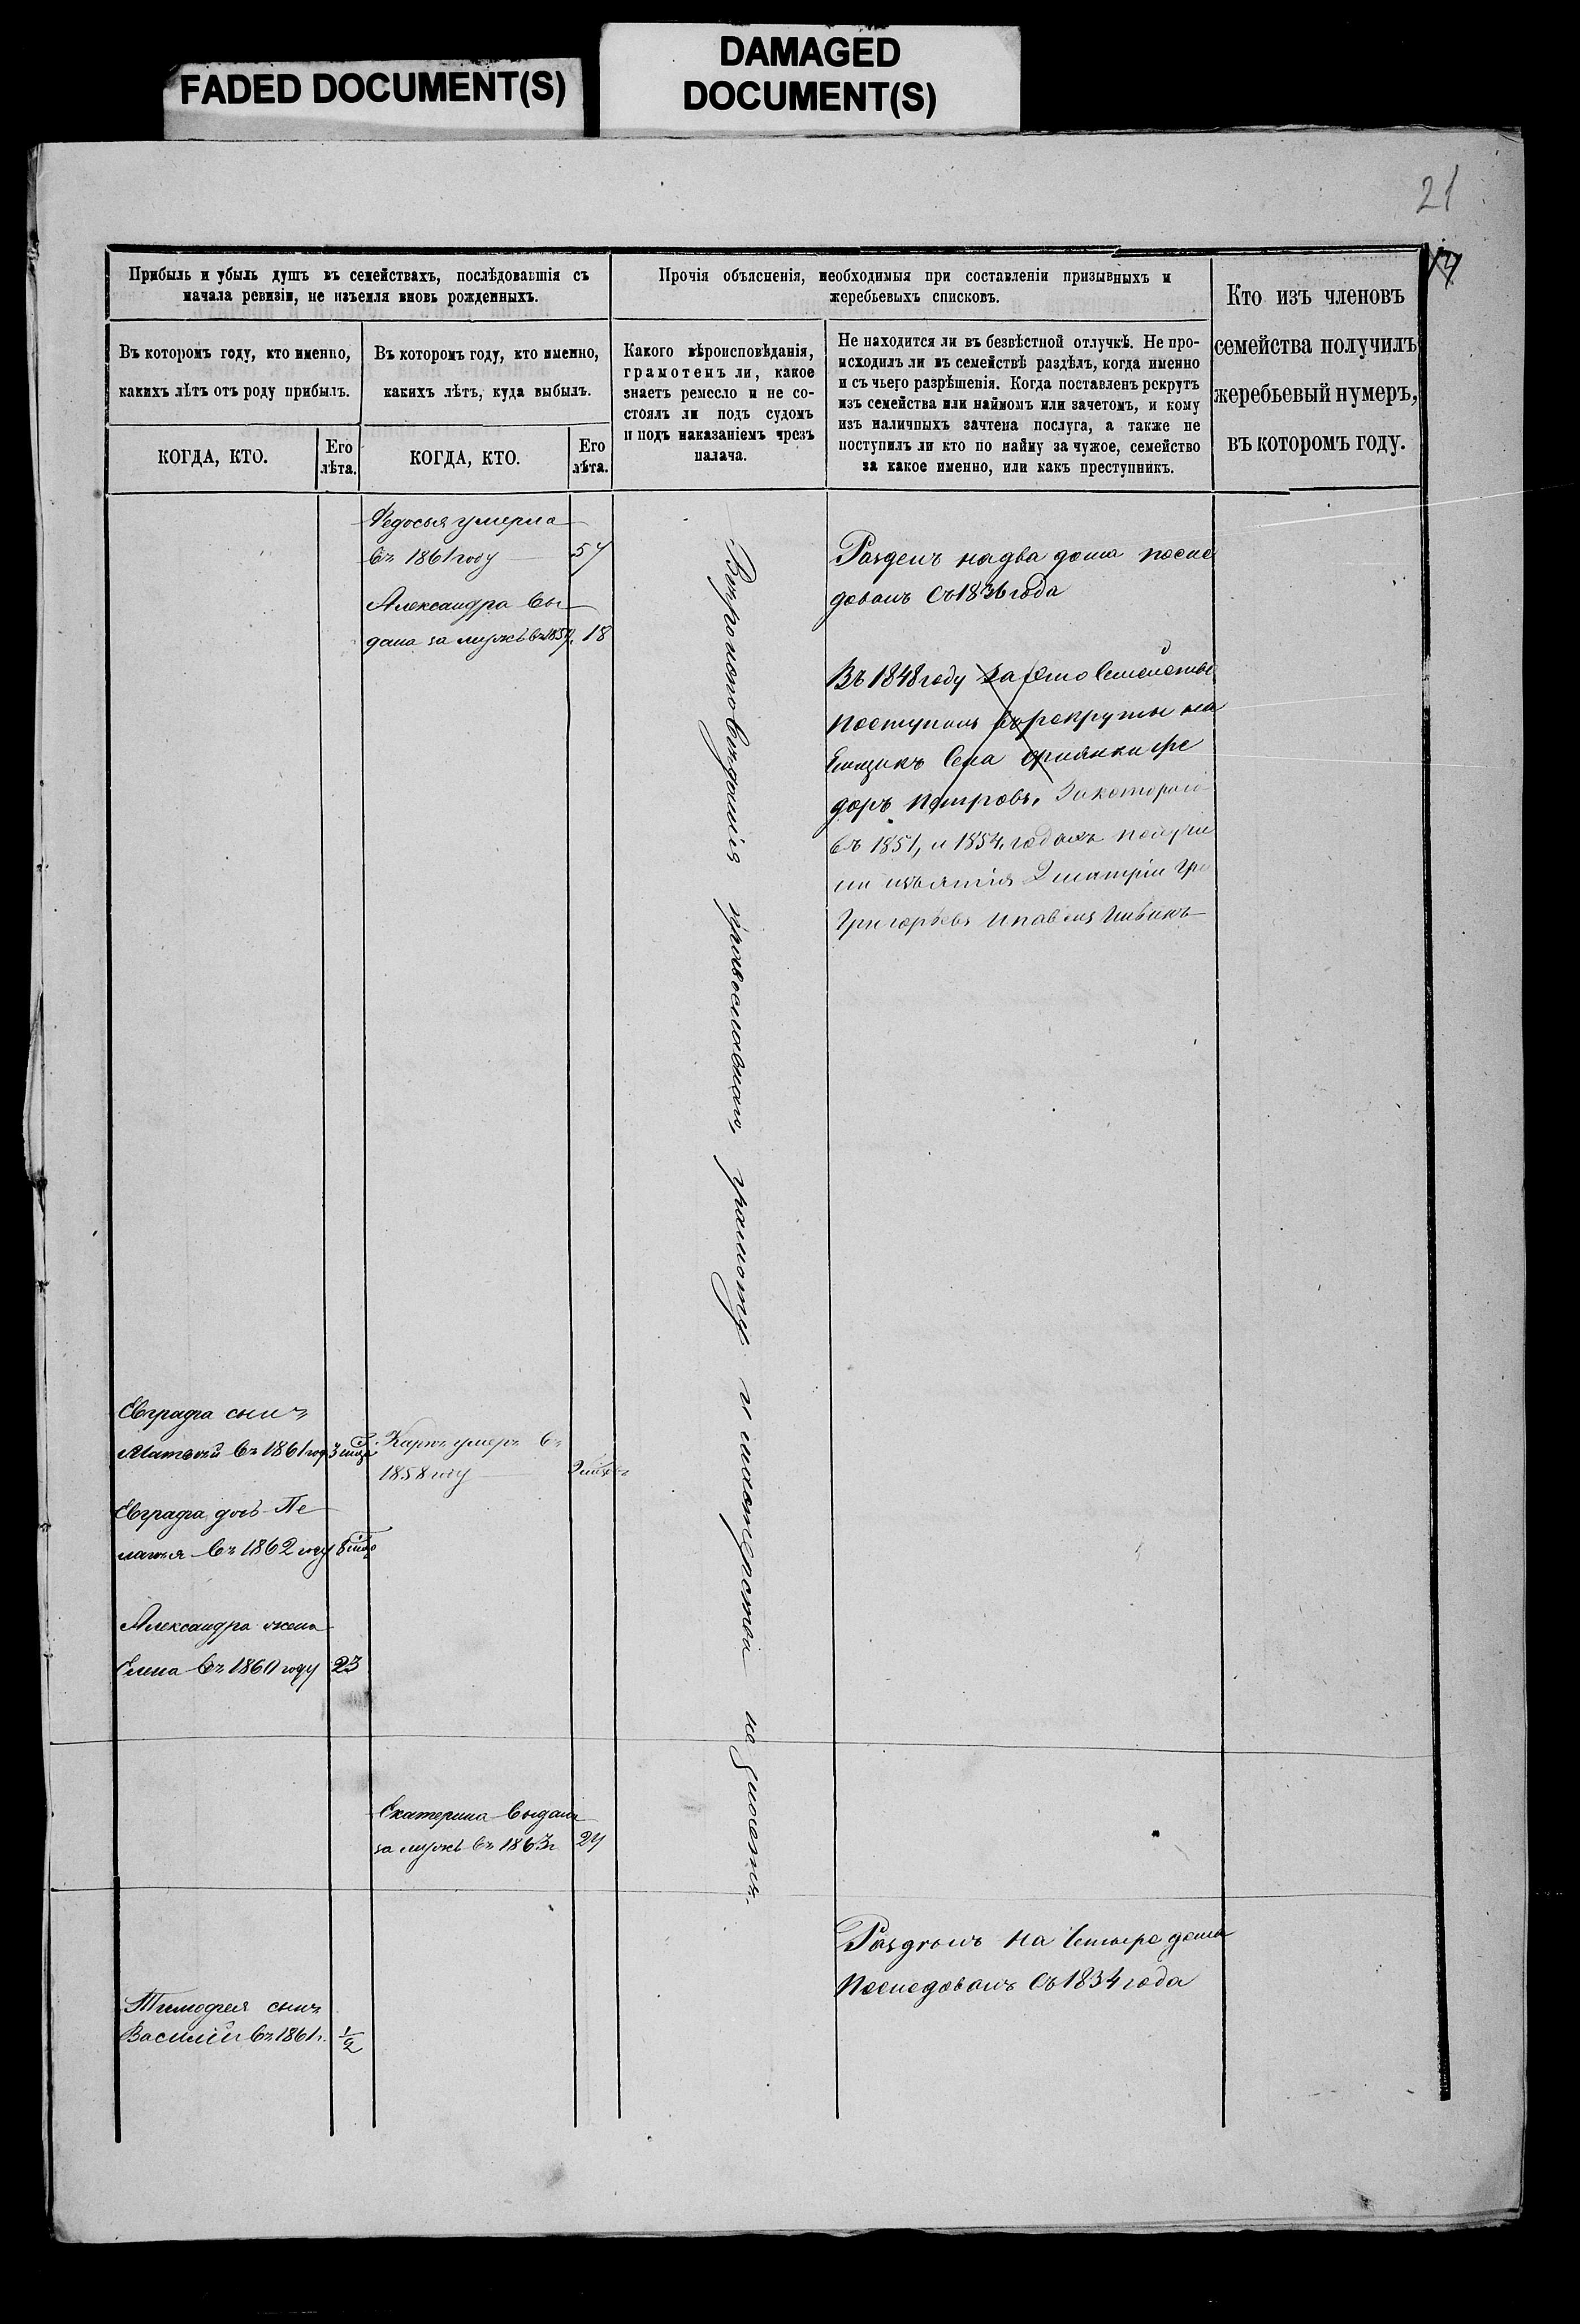 FADED DOCUMENT(S)
DAMAGED
DOCUMENT(S)
21
Прибыль и убыль душъ въ семействахъ, послѣдовавшія съ
начала ревизіи, не изъемля вновь рожденныхъ.
Въ которомъ году, кто именно,
какихъ лѣтъ отъ роду прибылъ.
КОГДА, КТО.
Его
лѣта.
Въ которомъ году, кто именно,
какихъ лѣтъ, куда выбылъ.
КОГДА, КТО.
Его
лѣта.
Прочія объясненія, необходимыя при составленіи призывныхъ и
жеребьевыхъ списковъ.
Какого вѣроисповѣданія,
грамотенъ ли, какое
знаетъ ремесло и не со-
стоялъ ли подъ судомъ
и подъ наказаніемъ чрезъ
палача.
Не находится ли въ безвѣстной отлучкѣ. Не про-
исходилъ ли въ семействѣ раздѣлъ, когда именно
и съ чьего разрѣшенія. Когда поставленъ рекрутъ
изъ семейства или наймомъ или зачетомъ, и кому
изъ наличныхъ зачтена послуга, а также не
поступилъ ли кто по найму за чужое, семейство
за какое именно, или какъ преступникъ.
Кто изъ членовъ
семейства получилъ
жеребьевый нумеръ,
въ которомъ году.
Федосья умерла
въ 1861 году 57
Александра вы-
дана за мужъ въ 1857. 18
Вѣроисповѣданія православнаго, грамоту и мастерства не знаютъ.
Раздѣлъ на два дома после
довалъ Съ 1836 года
Въ 1848 году за его Семейство
поступилъ въ рекруты на
Емщикъ Села Фе
доръ Петровъ, За котораго
въ 1851, и 1854, годахъ получи
ли изъятія Дмитріи Гри
Григорьевъ и павелъ
Евграфа сынъ
Матвѣй въ 1861 год 3 мца
Карпъ умеръ въ
1858 году
Евграфа дочь Пе
лагея въ 1862 году 8 мцо
Александра жена
Елена въ 1860 году 23
Екатерина выдана
за мужъ въ 1863 г 24
Раздѣлъ на Четыре дома
Последовалъ Съ 1834 года
Тимофея сынъ
Василій въ 1861 г. 1/2